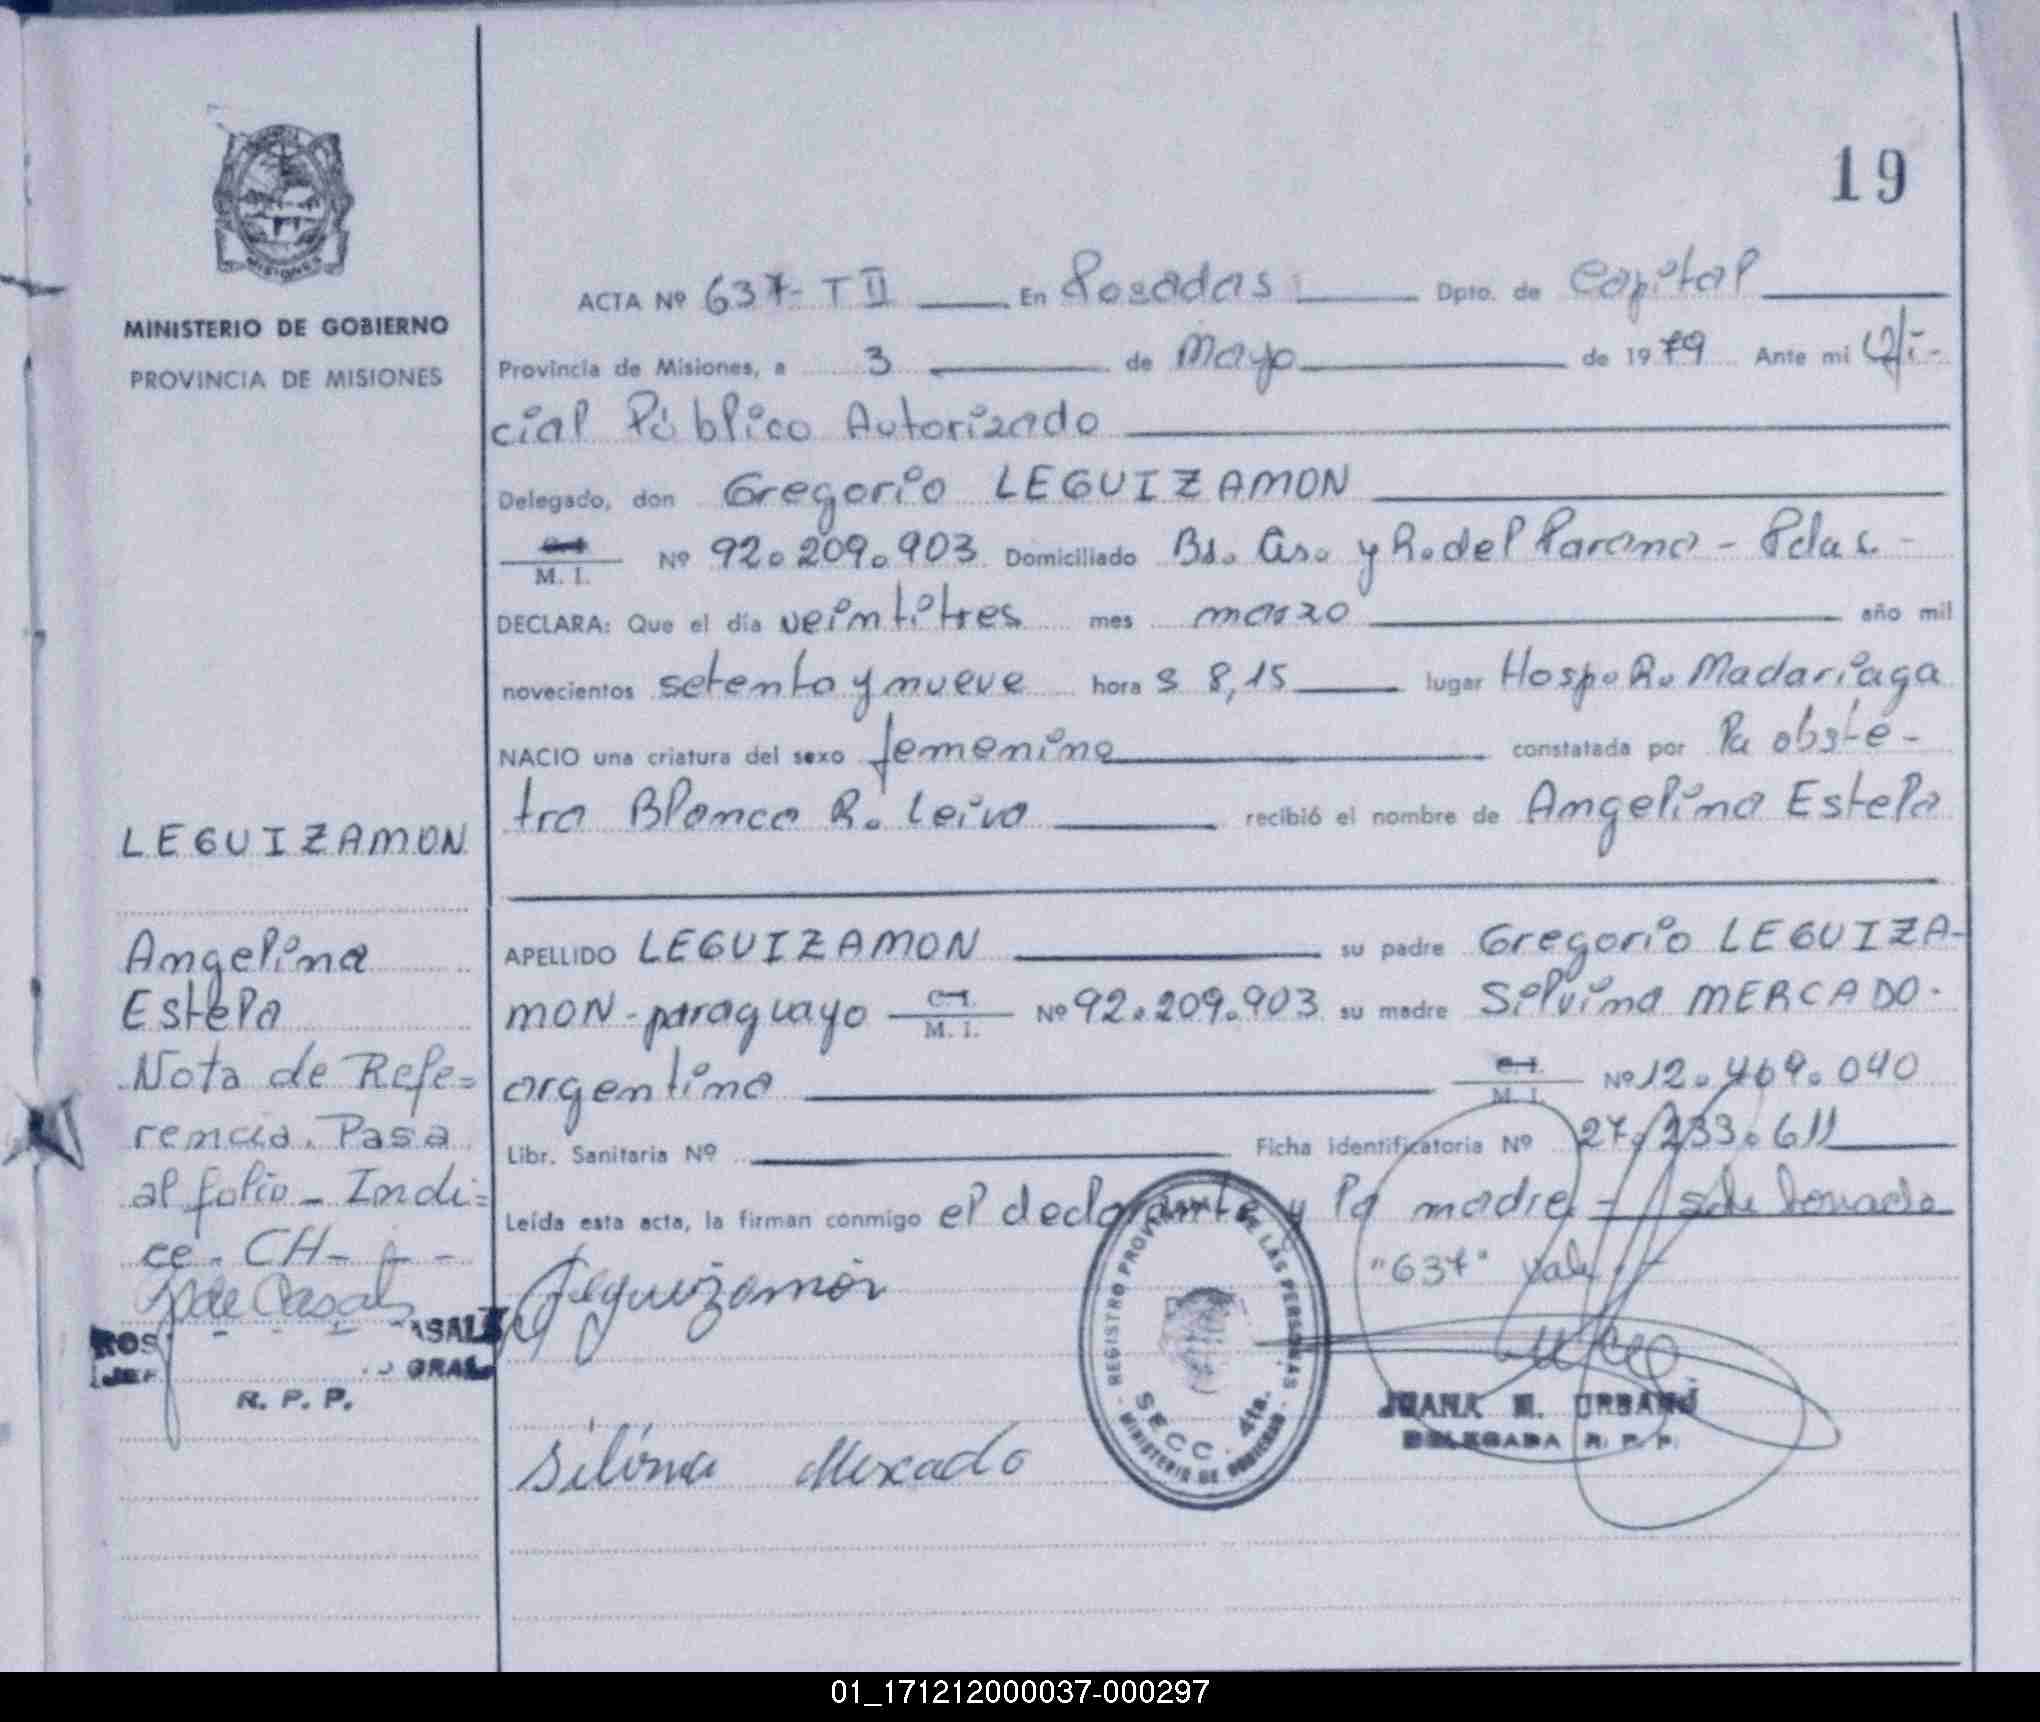 19
MINISTERIO DE GOBIERNO
PROVINCIA DE MISIONES
ACTA Nº 637- T II En Posadas Dpto. de Capital
Provincia de Misiones, a 3 de Mayo de 1979 Ante mi Ofi-
cial Público Autorizado
Delegado, don Gregorio LEGUIZAMON
M. I. Nº 92.209.903 Domiciliado Bs. As. y R. del Parana - Pdas. -
DECLARA: Que el día veintitres mes marzo año mil
novecientos setenta y nueve hora s 8,15 lugar Hosp. R. Madariaga
NACIO una criatura del sexo femenino constatada por la obste-
tra Blanca R. Leiva recibió el nombre de Angelina Estela
APELLIDO LEGUIZAMON su padre Gregorio LEGUIZA-
MON - paraguayo C.I. M. I. Nº 92.209.903 su madre Silvina MERCADO -
argentina C.I. M. I. Nº 12.469.040
Libr. Sanitaria Nº Ficha identificatoria Nº 27.233.611
Leída esta acta, la firman conmigo el declarante y la madre -
"637" vale
Leguizamón
Silvina Mercado
REGISTRO PROVINCIAL DE LAS PERSONAS
SECC. 4ta.
MINISTERIO DE GOBIERNO
JUANA M. URBANO
DELEGADA R. P. P.
LEGUIZAMON
Angelina
Estela
Nota de Refe=
rencia. Pasa
al folio - Indi=
ce - CH - - -
R. P. P.
MISIONES
01_171212000037-000297